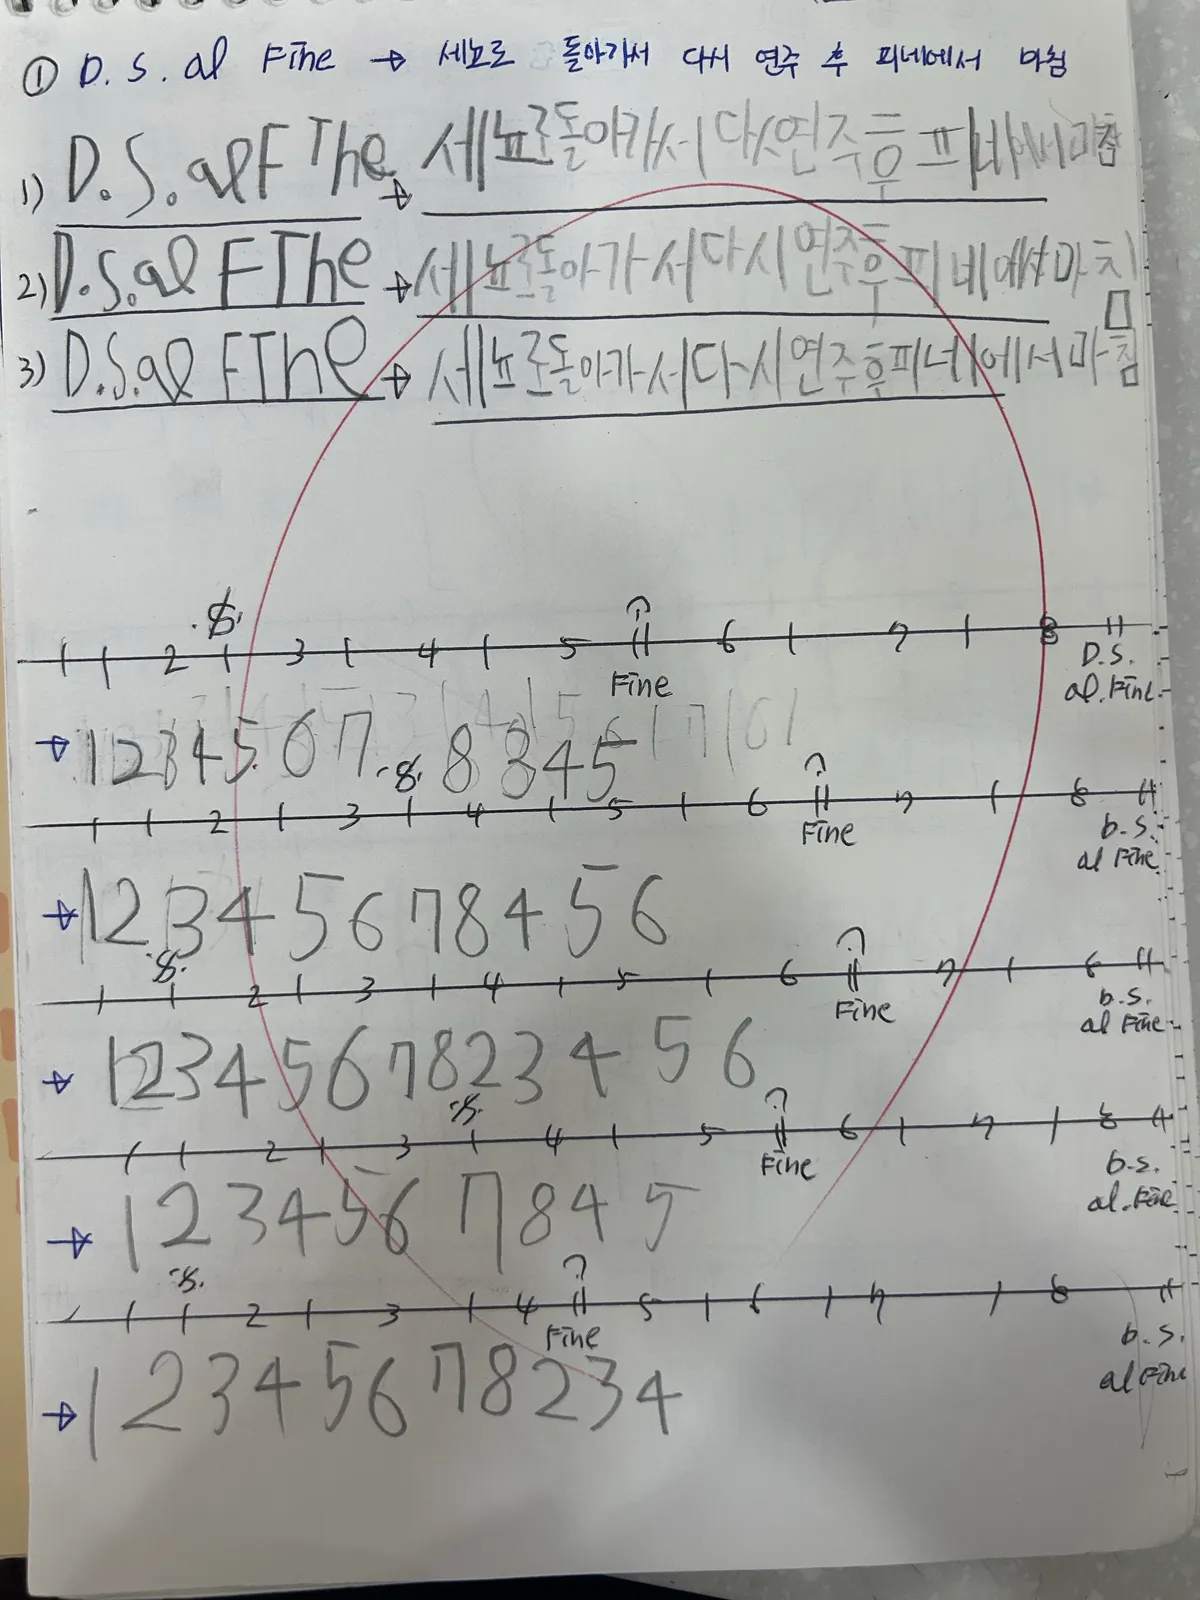 ① D. S. al Fine → 세뇨로 돌아가서 다시 연주 후 피네에서 마침
1) D.S. al FIhe → 세뇨로돌아가서다시연주후피네에서마침
2) D.S.al FIhe → 세뇨로돌아가서다시연주후피네에서마치
3) D.S.al FIhe → 세뇨로돌아가서다시연주후피네에서마침
1 2 3 4 5 6 7 8
Fine
D.S.
al.Fine
→ 1 2 3 4 5 6 7 8 3 4 5
2 3 4 5 6 7 8
Fine
D.S.
al Fine
→ 1 2 3 4 5 6 7 8 4 5 6
2 3 4 5 6 7 8
Fine
D.S.
al Fine
→ 1 2 3 4 5 6 7 8 2 3 4 5 6
1 2 3 4 5 6 7 8
Fine
D.S.
al.Fine
→ 1 2 3 4 5 6 7 8 4 5
2 3 4 5 6 7 8
Fine
D.S.
al Fine
→ 1 2 3 4 5 6 7 8 2 3 4